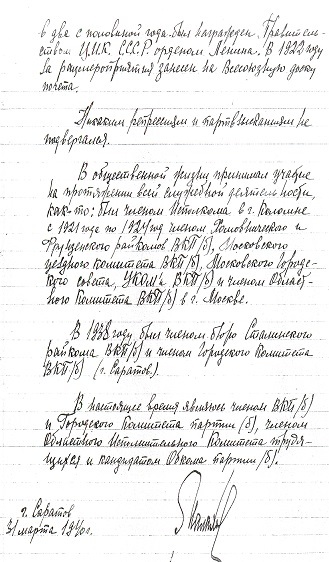 в два с половиной года был награжден Правитель-
ством Ц.И.К. С.С.С.Р. орденом Ленина. В 1932 году
за рацмероприятия занесен на Всесоюзную доску
почета.
Никаким репрессиям и партвзысканиям не
подвергался.
В общественной жизни принимал участие
на протяжении всей служебной деятельности,
как-то: был членом Исполкома в г. Коломне
с 1921 года по 1924 год членом Хамовнического и
Фрунзенского райкомов ВКП/б/, Московского
уездного комитета ВКП/б/, Московского Городс-
кого совета, ВКП/б/ и членом Област-
ного Комитета ВКП/б/ в г. Москве.
В 1938 году был членом бюро Сталинского
райкома ВКП/б/ и членом Городского Комитета
ВКП/б/ (г. Саратов.)
В настоящее время являюсь членом ВКП/б/
и Городского Комитета партии /б/, членом
Областного Исполнительного Комитета трудя-
щихся и кандидатом Обкома партии /б/.
г. Саратов
31 марта 1940 г.